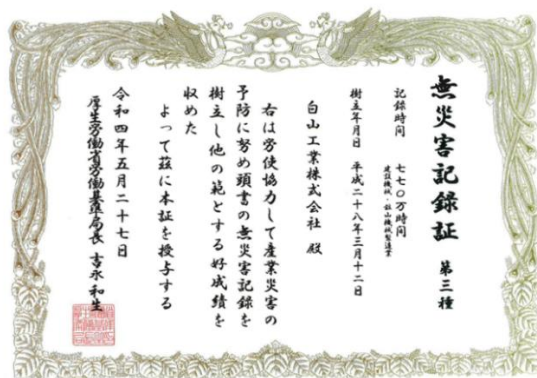 無災害記録証 第三種
記録時間 七七〇万時間
建設機械・鉱山機械製造業
樹立年月日 平成二十八年三月十二日
白山工業株式会社 殿
右は労使協力して産業災害の
予防に努め頭書の無災害記録を
樹立し他の範とする好成績を
収めた
よって茲に本証を授与する
令和四年五月二十七日
厚生労働省労働基準局長 吉永和生